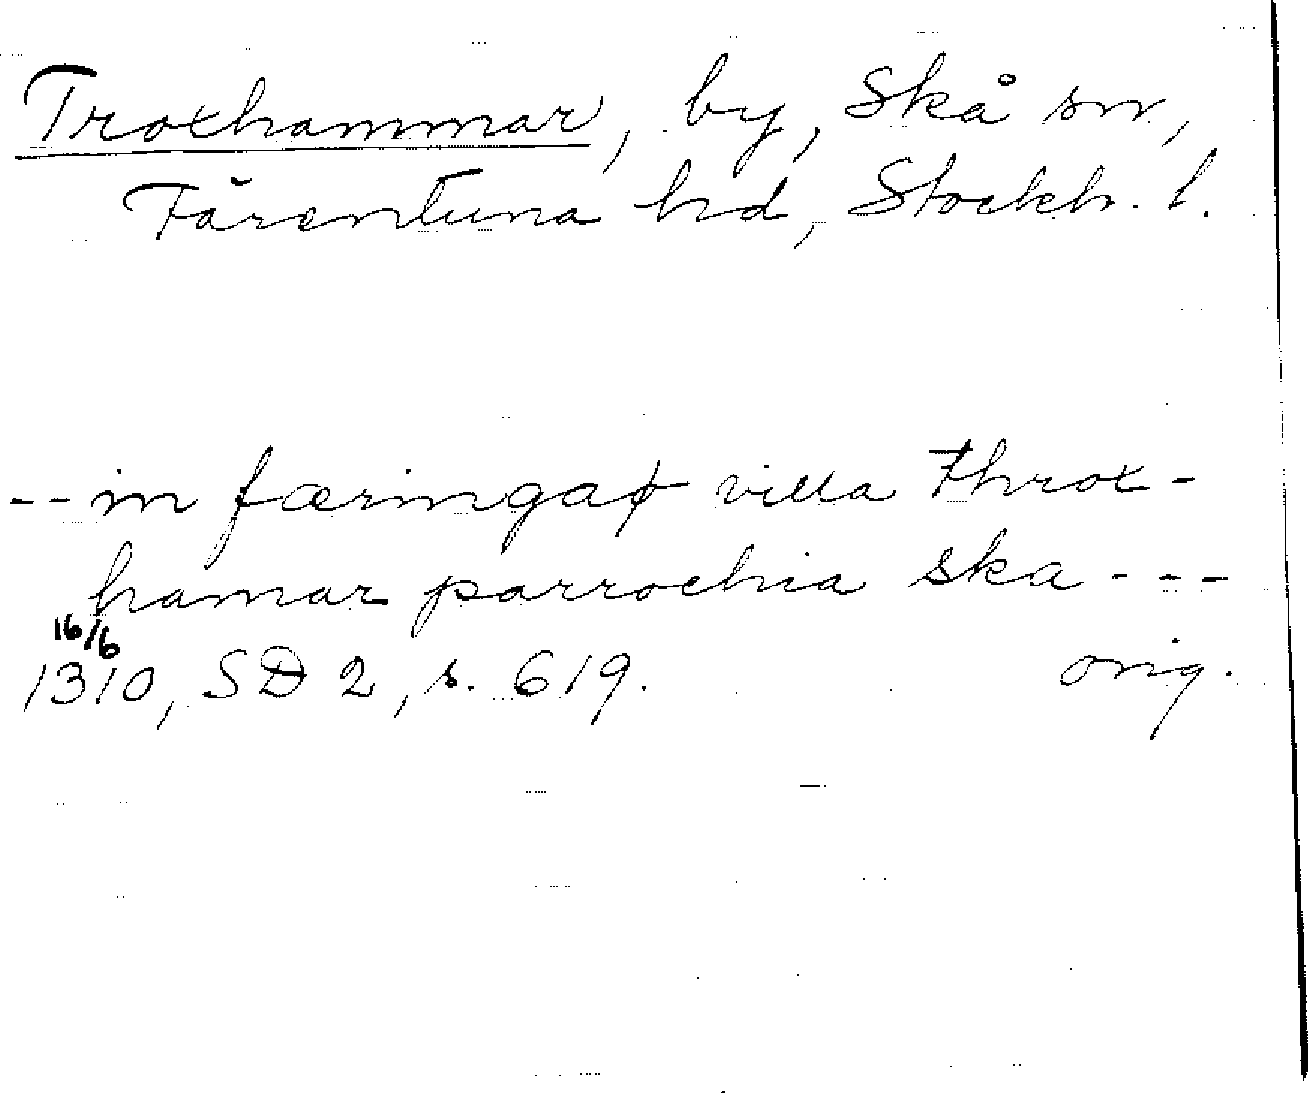 Troxhammar, by, Skå sn,
Färentuna hd, Stockh. l.
-- in færingaø villa throx-
hamar parrochia ska ---
16/6
1310, SD 2, s. 619. orig.